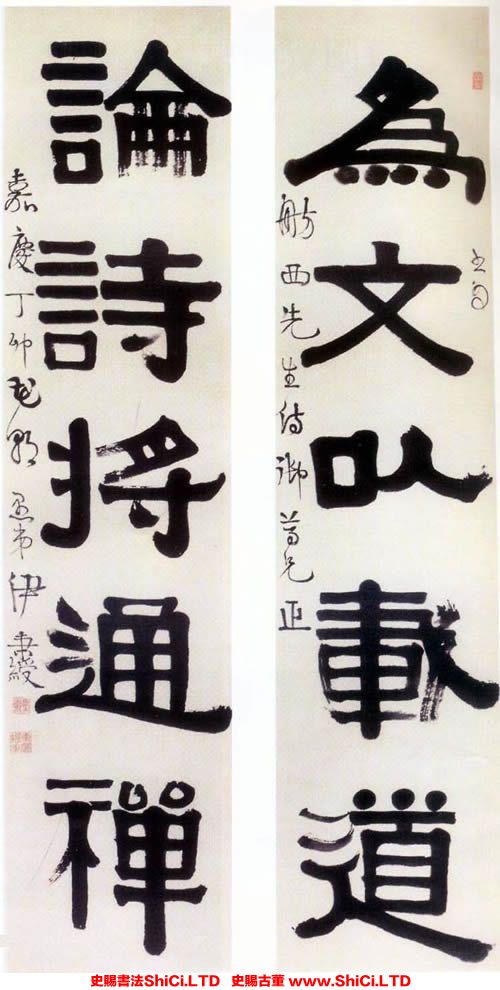 為文以載道
舫西先生侍御尊兄正
論詩將通禪
嘉慶丁卯花朝愚弟伊秉綬
史賜書法ShiCi.LTD 史賜古董 www.ShiCi.LTD